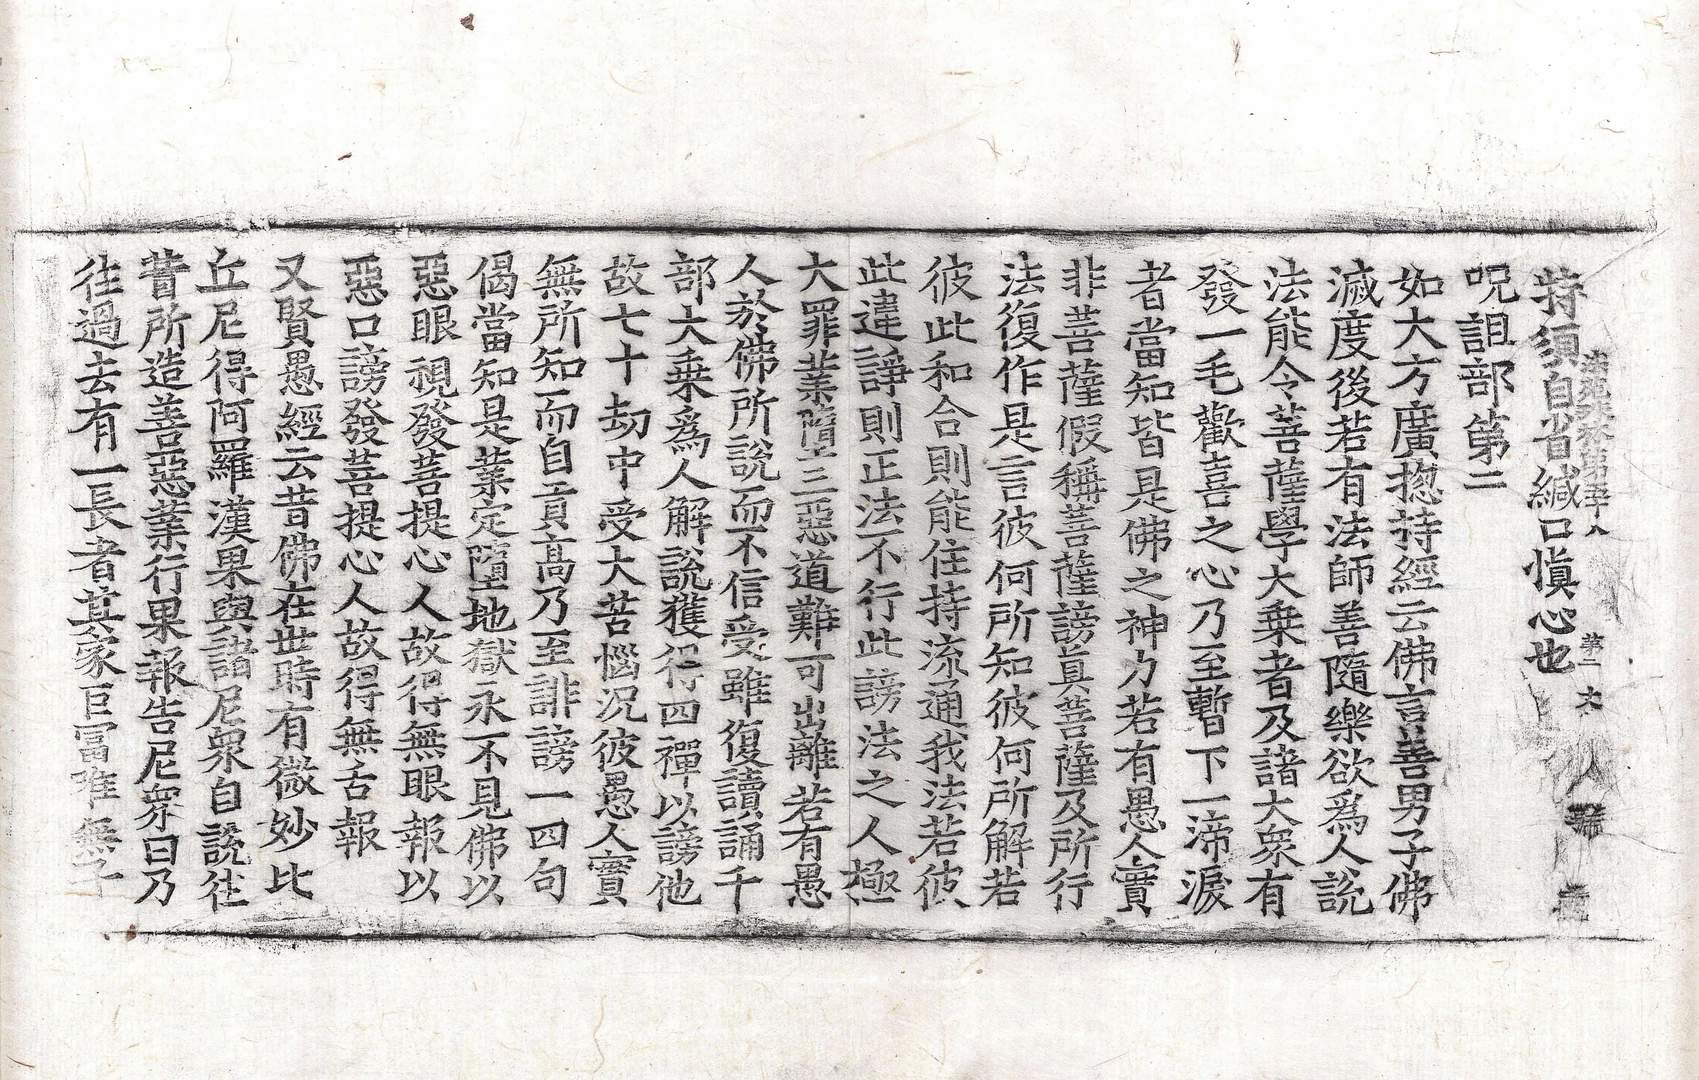 法苑珠林第五十八 第二 大 人
特須自省緘口愼心也
呪詛部第二
如大方廣揔持經云佛言善男子佛
滅度後若有法師善隨樂欲爲人說
法能令菩薩學大乗者及諸大衆有
發一毛歡喜之心乃至暫下一渧淚
者當知皆是佛之神力若有愚人實
非菩薩假稱菩薩謗眞菩薩及所行
法復作是言彼何所知彼何所解若
彼此和合則能住持流通我法若彼
此違諍則正法不行此謗法之人極
大罪業墮三惡道難可出離若有愚
人於佛所說而不信受雖復讀誦千
部大乗爲人解說獲得四禪以謗他
故七十劫中受大苦惱況彼愚人實
無所知而自貢高乃至誹謗一四句
偈當知是業定墮地獄永不見佛以
惡眼視發菩提心人故得無眼報以
惡口謗發菩提心人故得無舌報
又賢愚經云昔佛在世時有微妙比
丘尼得阿羅漢果與諸尼衆自說往
昔所造善惡業行果報告尼衆曰乃
往過去有一長者其家巨冨唯無子